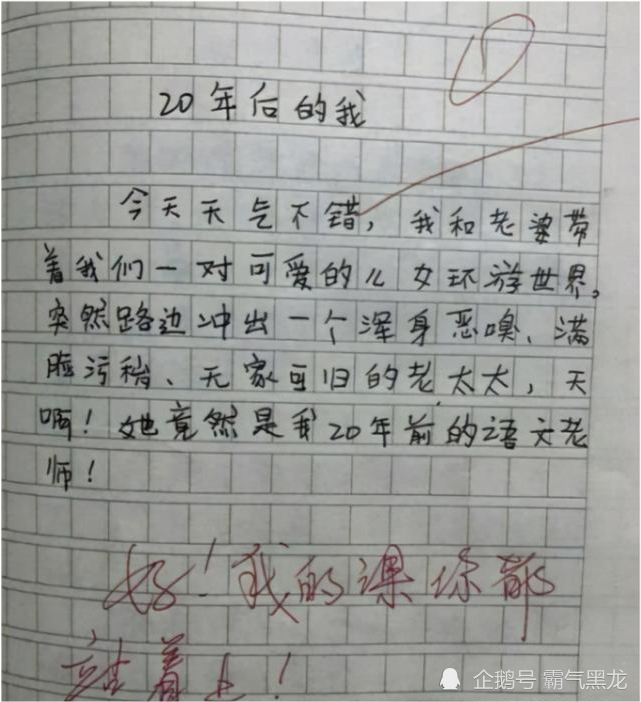 20年后的我
今天天气不错,我和老婆带
着我们一对可爱的儿女环游世界。
突然路边冲出一个浑身恶嗅、满
脸污秽、无家可归的老太太,天
啊!她竟然是我20年前的语文老
师!
好!我的课你都
站着上!
企鹅号 霸气黑龙